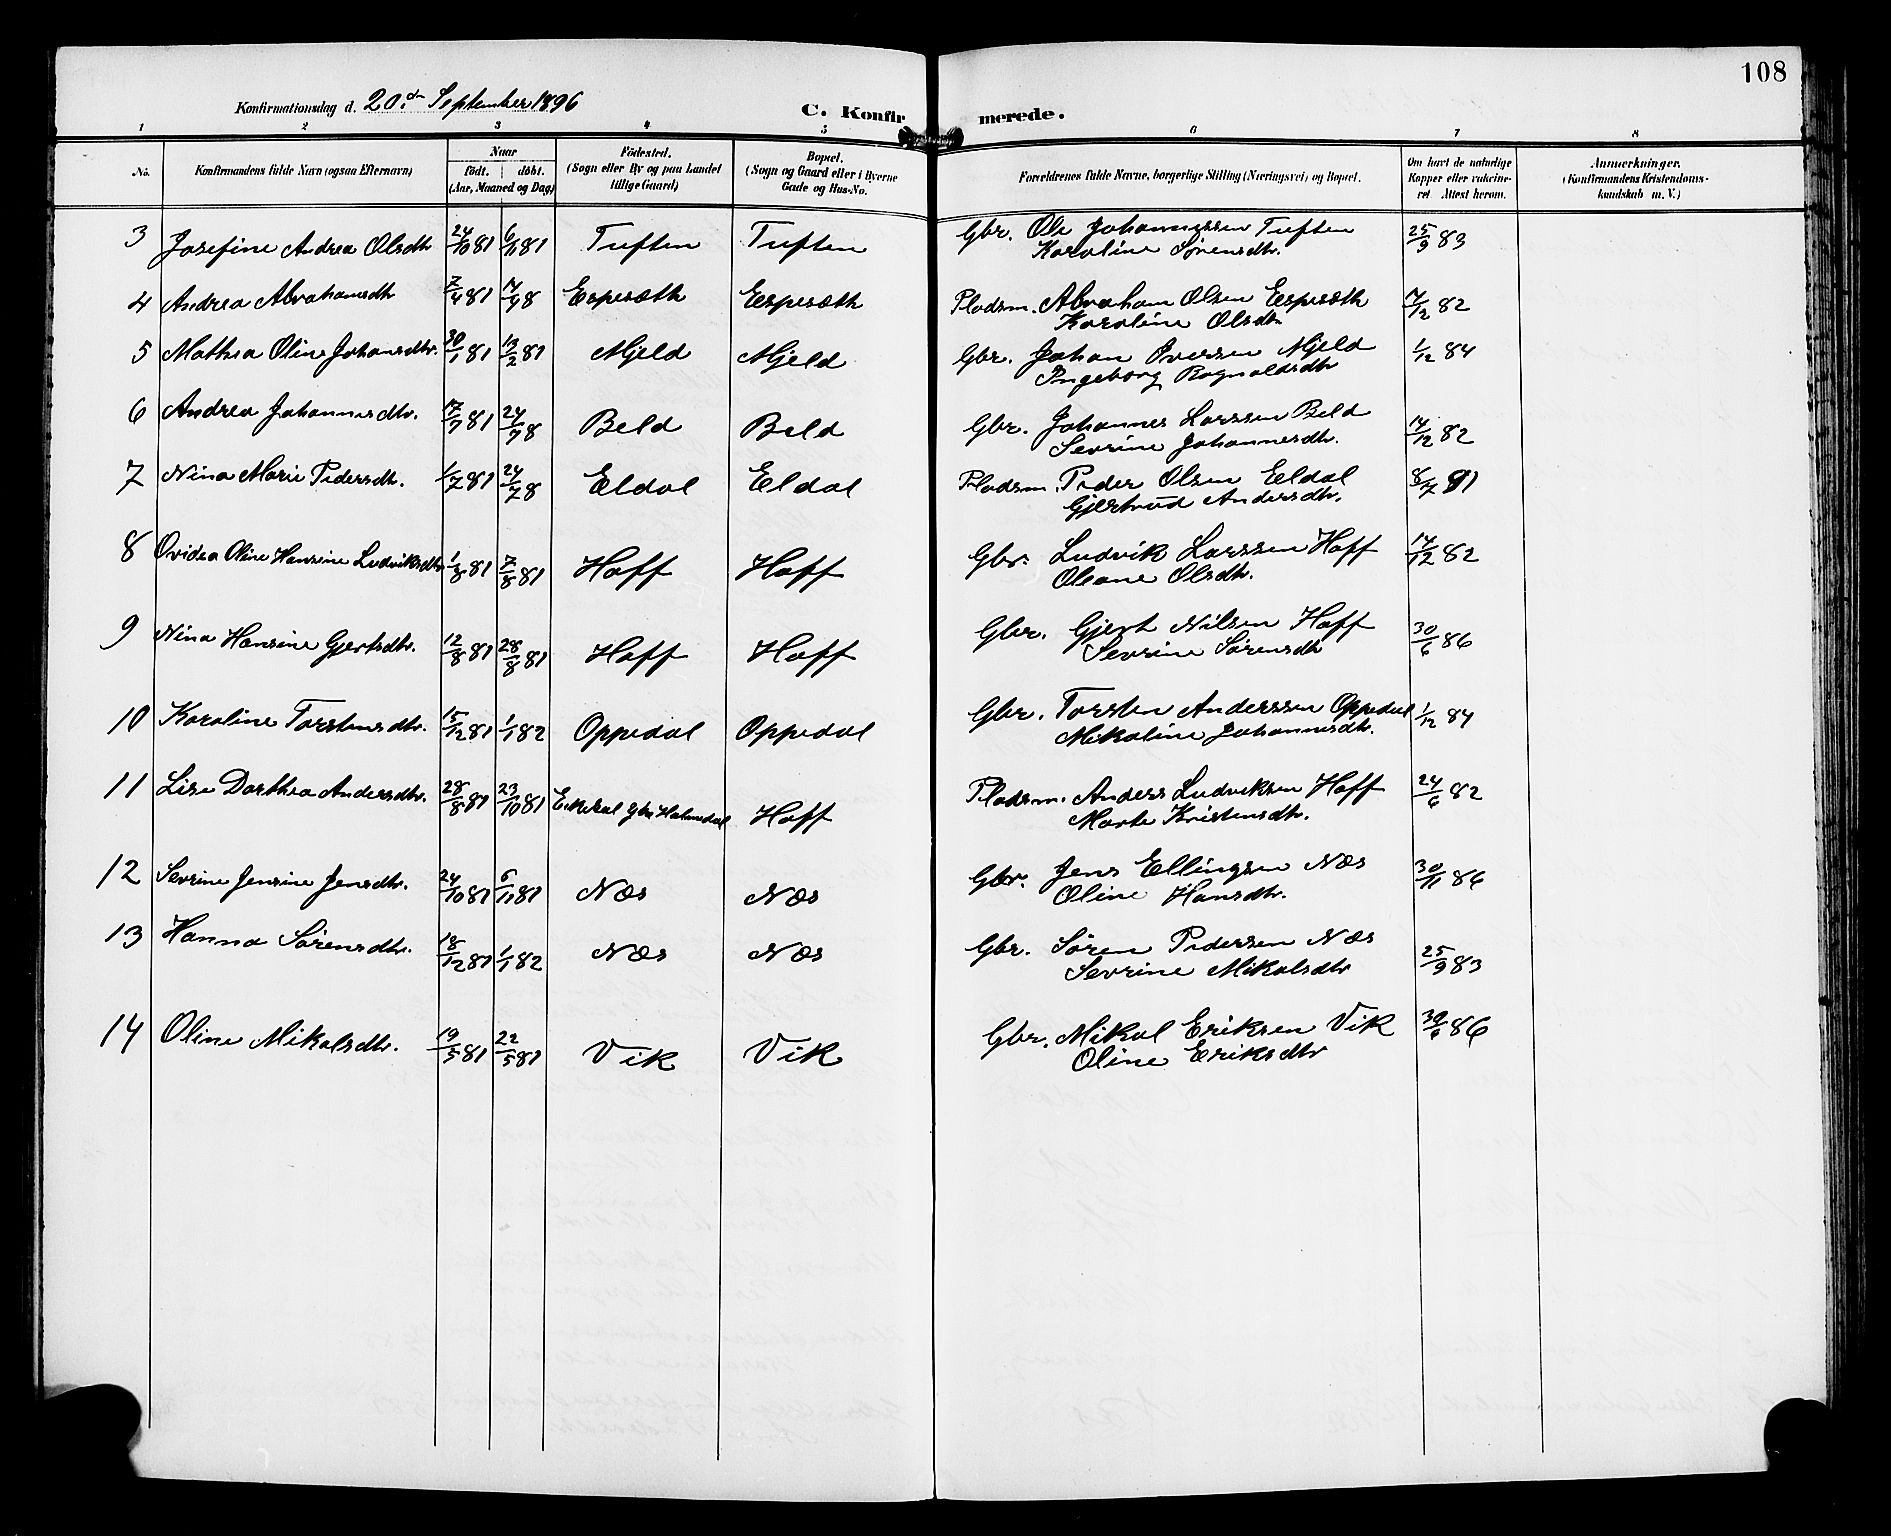 108
Konfirmationsdag d. 20de September 1896
C. Konfirmerede.
1 2 3 4 5 6 7 8
No. | Konfirmandens fulde Navn (ogsaa Efternavn) | Naar födt. | döbt. (Aar, Maaned og Dag) | Födested. (Sogn eller By og paa Landet tillige Gaard) | Bopæl. (Sogn og Gaard eller i Byerne Gade og Hus-No. | Forældrenes fulde Navne, borgerlige Stilling (Næringsvei) og Bopæl. | Om havt de naturlige Kopper eller vakcineret. Attest herom. | Anmærkninger. (Konfirmandens Kristendomskundskab m. V.)
3 Josefine Andrea Olsdtr 24/10 81 6/11 81 Tuften Tuften Gbr. Ole Johannessen Tuften 25/9 83
Karoline Sørensdtr.
4 Andrea Abrahamsdtr 7/4 81 Espesæth Espesæth Pladsm. Abraham Olsen Espesæth 17/12 82
Karoline Olsdtr
5 Mathea Oline Johansdtr. 30/1 81 13/2 81 Mjeld Mjeld Gbr. Johan Iversen Mjeld 1/12 84
Ingeborg Rognaldsdtr
6 Andrea Johannesdtr. 17/7 81 24/7 8 Beld Beld Gbr. Johannes Larssen Beld 14/12 82
Sevrine Johannesdtr.
7 Nina Marie Pedersdtr. 1/7 81 24/7 8 Eldal Eldal Pladsm. Peder Olsen Eldal 8/7
Gjertrud Andersdtr.
8 Ovidea Oline Hansine Ludviksdtr 1/8 81 7/8 81 Hoff Hoff Gbr. Ludvik Larssen Hoff 14/12 82
Oleane Olsdtr.
9 Nina Hansine Gjertsdtr. 12/8 81 28/8 81 Hoff Hoff Gbr. Gjert Nilsen Hoff 30/6 86
Sevrine Sørensdtr
10 Karoline Torstensdtr. 15/12 81 1/1 82 Oppedal Oppedal Gbr. Torsten Anderssen Oppedal 1/12 84
Mikaline Johannesdtr.
11 Lise Dorthea Andersdtr. 28/8 81 23/10 81 Holmedal Hoff Pladsm. Anders Ludviksen Hoff 24/6 82
Marte Kristensdtr.
12 Sevrine Jensine Jensdtr. 24/10 81 6/11 81 Næs Næs Gbr. Jens Ellingsen Næs 30/11 86
Oline Hansdtr.
13 Hanna Sørensdtr. 18/12 81 1/1 82 Næs Næs Gbr. Søren Pedersen Næs 25/9 83
Sevrine Mikalsdtr
14 Oline Mikalsdtr. 19/5 81 22/5 81 Vik Vik Gbr. Mikal Eriksen Vik 30/6 86
Oline Eriksdtr